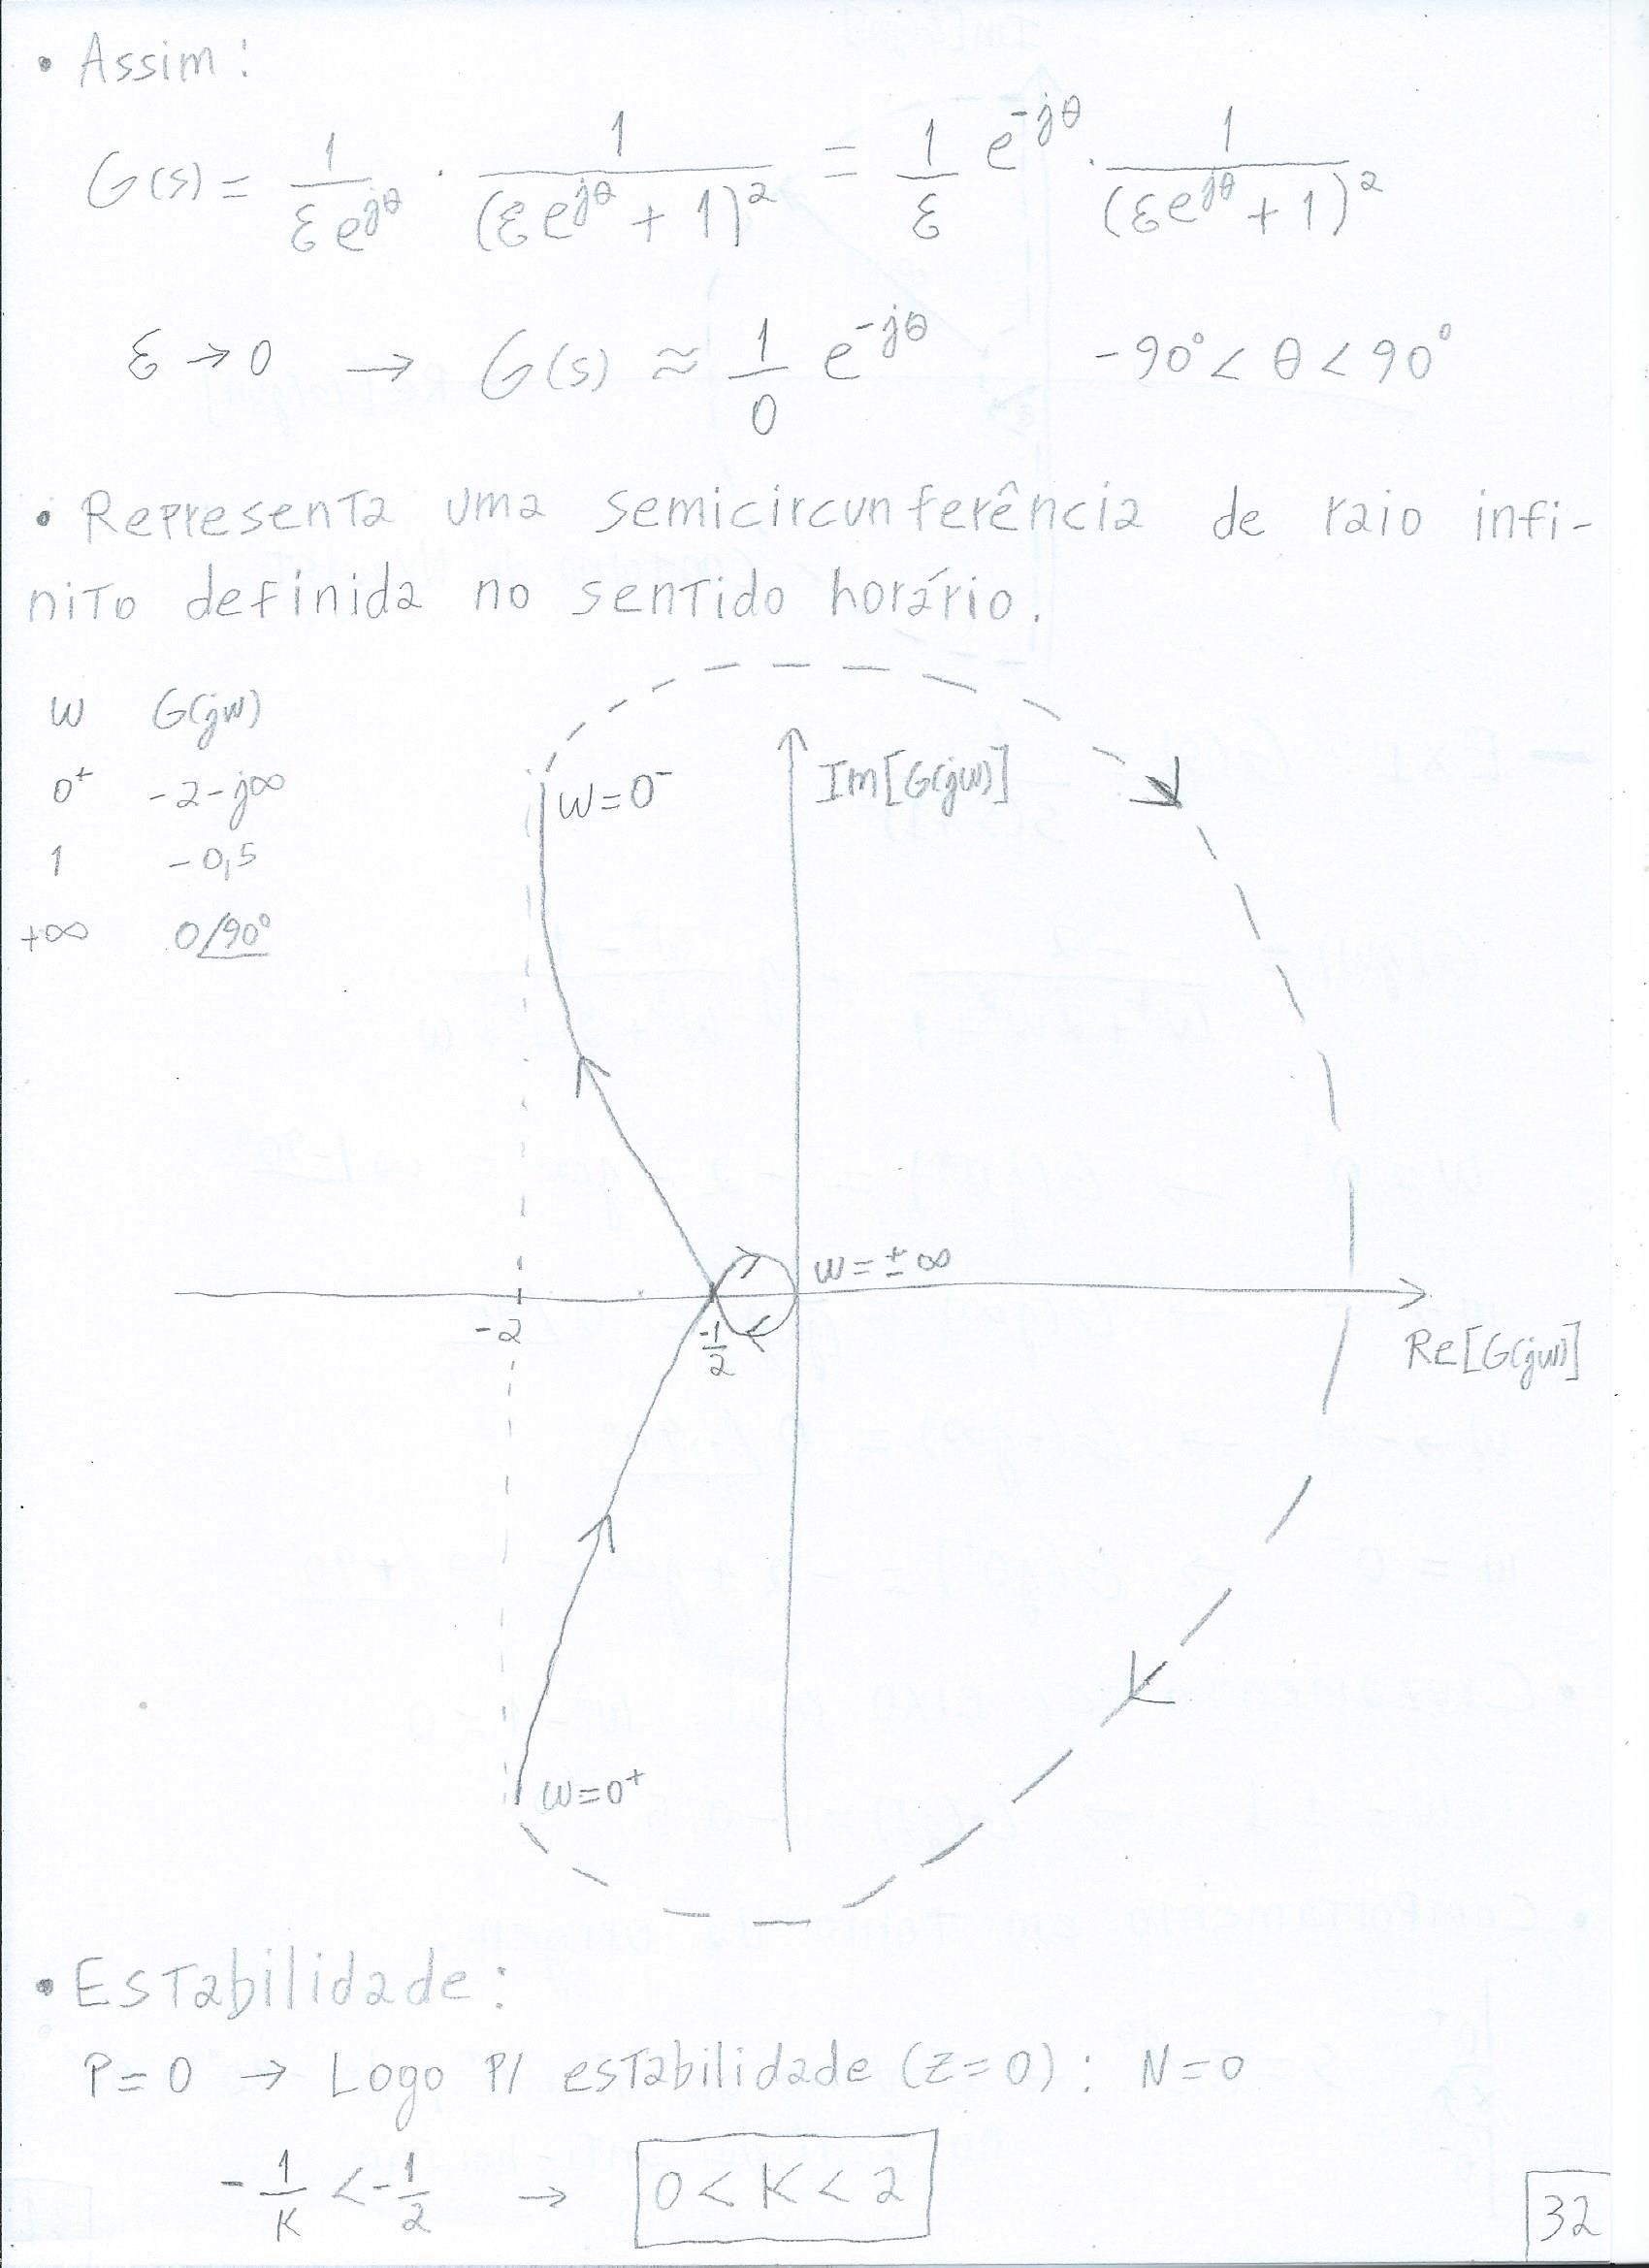 • Assim:
G(s) = 1/(εe^{jθ}) · 1/(εe^{jθ} + 1)² = 1/ε e^{-jθ} · 1/(εe^{jθ} + 1)²
ε → 0 → G(s) ≈ 1/0 e^{-jθ} -90° < θ < 90°
• Representa uma semicircunferência de raio infi-
nito definida no sentido horário.
w G(jw)
0⁺ -2-j∞
1 -0,5
+∞ 0/90°
w=0⁻
Im[G(jw)]
w=±∞
-2
-1/2
Re[G(jw)]
w=0⁺
• Estabilidade:
P=0 → Logo p/ estabilidade (z=0): N=0
-1/K < -1/2 → 0 < K < 2
32